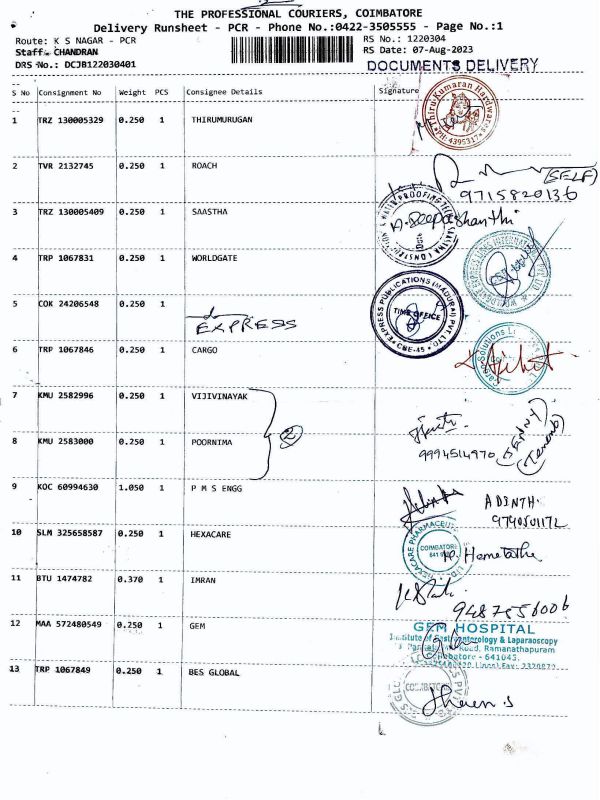 THE PROFESSIONAL COURIERS, COIMBATORE
Delivery Runsheet - PCR - Phone No.:0422-3505555 - Page No.:1
Route: K S NAGAR - PCR
RS No.: 1220304
Staff: CHANDRAN
RS Date: 07-Aug-2023
DRS No.: DCJB122030401
DOCUMENTS DELIVERY
S No Consignment No Weight PCS Consignee Details Signature
1 TRZ 130005329 0.250 1 THIRUMURUGAN
Thiru Kumaran Hardwares
PH: 4395317
2 TVR 2132745 0.250 1 ROACH
(SELF)
9715820136
3 TRZ 130005409 0.250 1 SAASTHA
A. Deepashanthi
4 TRP 1067831 0.250 1 WORLDGATE
5 COK 24206548 0.250 1
EXPRESS
EXPRESS PUBLICATIONS (MADURAI) PVT LTD
TIME OFFICE
CBE-45
6 TRP 1067846 0.250 1 CARGO
7 KMU 2582996 0.250 1 VIJIVINAYAK
8 KMU 2583000 0.250 1 POORNIMA
2
9994514970
9 KOC 60994630 1.050 1 P M S ENGG
9790501172
10 SLM 325658587 0.250 1 HEXACARE
HEXACARE PHARMACEUTICALS
COIMBATORE
11 BTU 1474782 0.370 1 IMRAN
9487556006
12 MAA 572480549 0.250 1 GEM
GEM HOSPITAL
Institute of Gastroenterology & Laparoscopy
Road, Ramanathapuram
Coimbatore - 641045.
13 TRP 1067849 0.250 1 BES GLOBAL
COIMBATORE